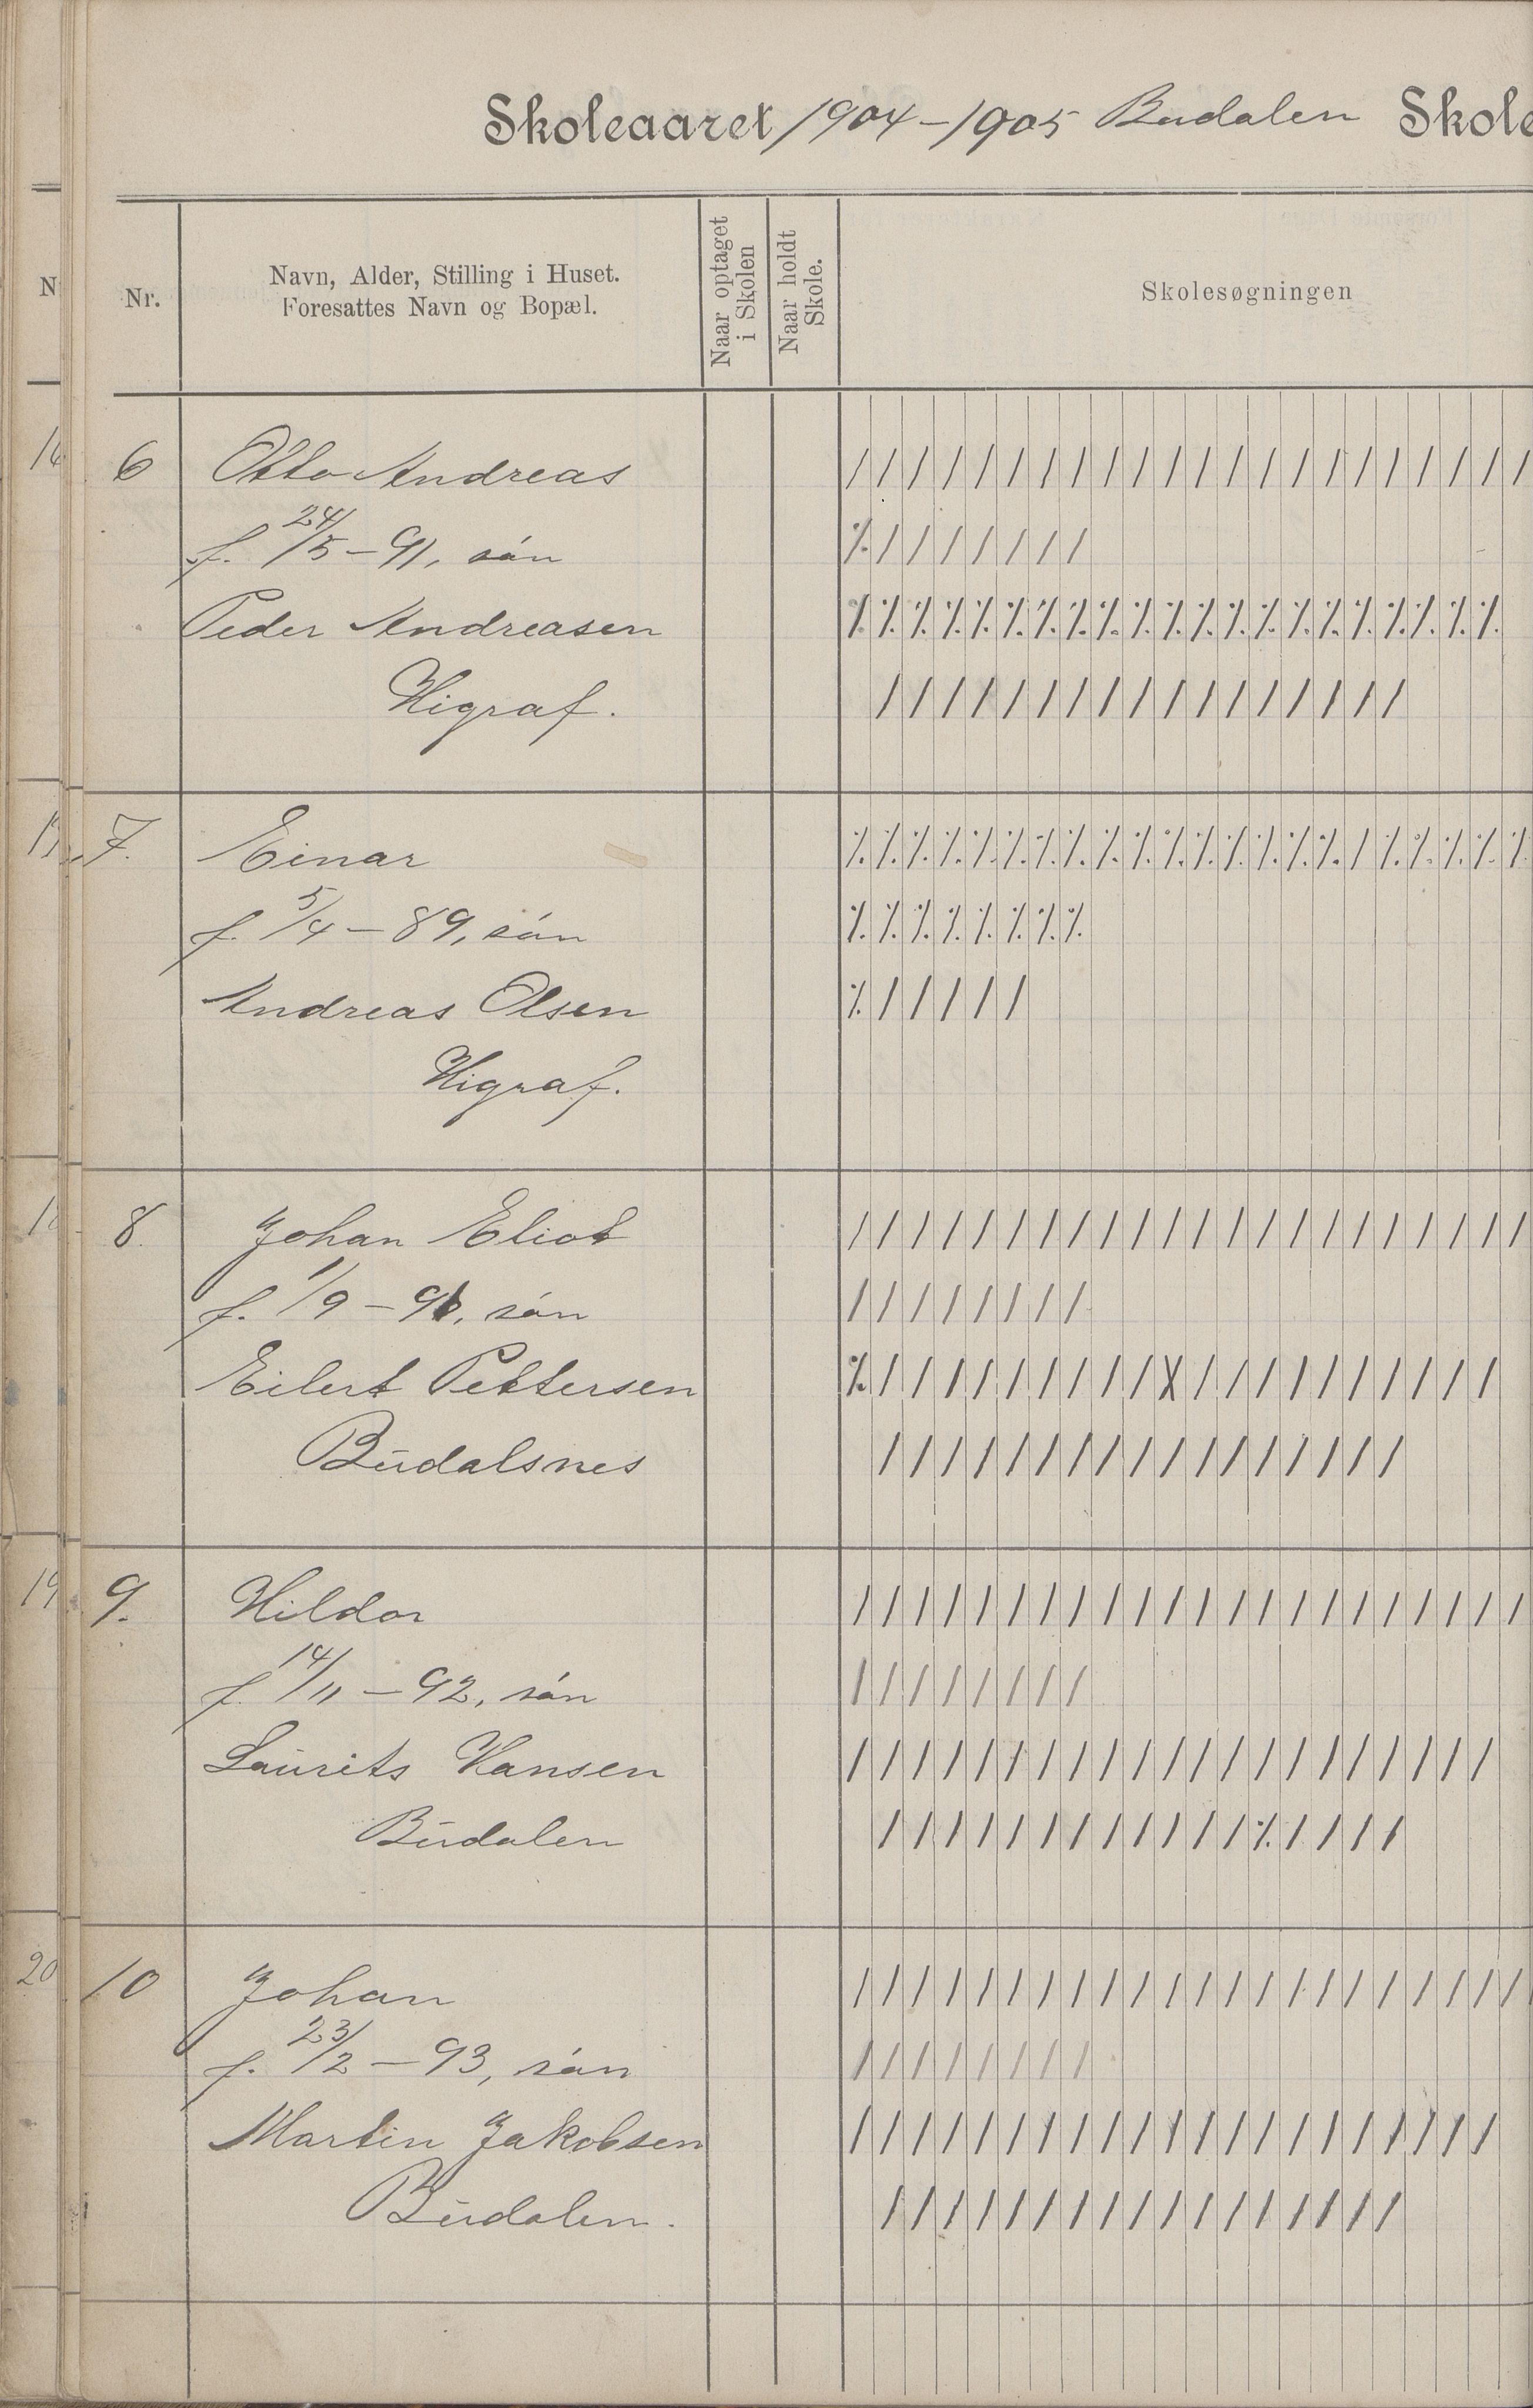 Skoleaaret 1904-1905 Budalen Skole
N
Nr.
Navn, Alder, Stilling i Huset.
Foresattes Navn og Bopæl.
Naar optaget
i Skolen
Naar holdt
Skole.
Skolesøgningen
6 Otto Andreas
f. 24/5 - 91, són
Peder Andreasen
Higraf.
7. Einar
f. 5/4 - 89, són
Andreas Olsen
Higraf.
8. Johan Eliot
f. 1/9 - 91, són
Eilert Pettersen
Budalsnes
19
9. Hildor
f. 14/11 - 92, són
Laurits Hansen
Budalen
20
10 Johan
f. 23/2 - 93, són
Martin Jakobsen
Budalen.